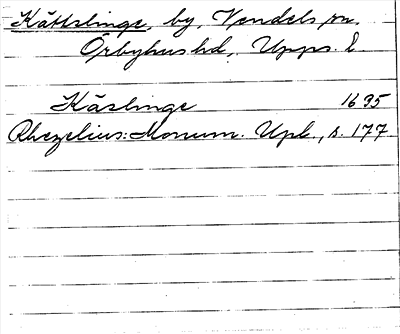 Kättslinge, by, Vendels sn.
Örbyhus hd, Upps. l.
Käslinge 1695
Rhezelius: Monum. Upl., s. 177